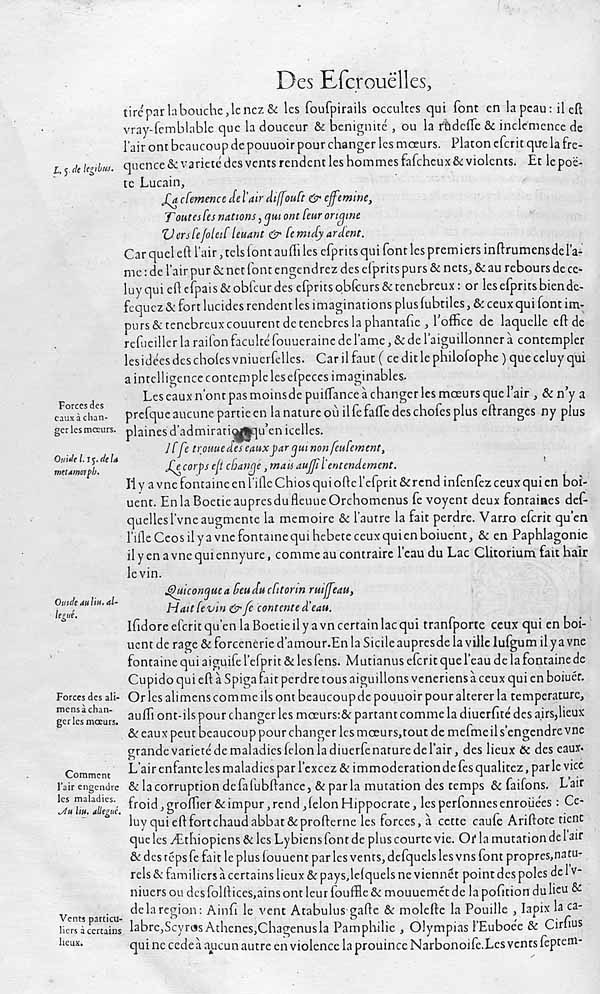 Des Eſcrouëlles,
tiré par la bouche, le nez & les ſouſpirails occultes qui ſont en la peau: il eſt
vray-ſemblable que la douceur & benignité, ou la rudeſſe & inclemence de
l'air ont beaucoup de pouuoir pour changer les mœurs. Platon eſcrit que la fre-
L. 5. de legibus.
quence & varieté des vents rendent les hommes faſcheux & violents. Et le poë-
te Lucain,
La clemence de l'air diſſoult & effemine,
Toutes les nations, qui ont leur origine
Vers le ſoleil leuant & le midy ardent.
Car quel eſt l'air, tels ſont auſſi les eſprits qui ſont les premiers inſtrumens de l'a-
me: de l'air pur & net ſont engendrez des eſprits purs & nets, & au rebours de ce-
luy qui eſt eſpais & obſcur des eſprits obſcurs & tenebreux: or les eſprits bien de-
fequez & fort lucides rendent les imaginations plus ſubtiles, & ceux qui ſont im-
purs & tenebreux couurent de tenebres la phantaſie, l'office de laquelle eſt de
reſueiller la raiſon faculté ſouueraine de l'ame, & de l'aiguillonner à contempler
les idées des choſes vniuerſelles. Car il faut (ce dit le philoſophe) que celuy qui
a intelligence contemple les eſpeces imaginables.
Forces des
eaux à chan-
ger les mœurs.
Les eaux n'ont pas moins de puiſſance à changer les mœurs que l'air, & n'y a
preſque aucune partie en la nature où il ſe faſſe des choſes plus eſtranges ny plus
plaines d'admiration qu'en icelles.
Ouide l. 15. de la
metamorph.
Il ſe trouue des eaux par qui non ſeulement,
Le corps eſt changé, mais auſſi l'entendement.
Il y a vne fontaine en l'iſle Chios qui oſte l'eſprit & rend inſenſez ceux qui en boi-
uent. En la Boetie aupres du fleuue Orchomenus ſe voyent deux fontaines deſ-
quelles l'vne augmente la memoire & l'autre la fait perdre. Varro eſcrit qu'en
l'iſle Ceos il y a vne fontaine qui hebete ceux qui en boiuent, & en Paphlagonie
il y en a vne qui ennyure, comme au contraire l'eau du Lac Clitorium fait hair
le vin.
Ouide au liu. al-
legué.
Quiconque a beu du clitorin ruiſſeau,
Hait le vin & ſe contente d'eau.
Iſidore eſcrit qu'en la Boetie il y a vn certain lac qui tranſporte ceux qui en boi-
uent de rage & forcenerie d'amour. En la Sicile aupres de la ville Iuſgum il y a vne
fontaine qui aiguiſe l'eſprit & les ſens. Mutianus eſcrit que l'eau de la fontaine de
Cupido qui eſt à Spiga fait perdre tous aiguillons veneriens à ceux qui en boiuēt.
Forces des ali-
mens à chan-
ger les mœurs.
Or les alimens comme ils ont beaucoup de pouuoir pour alterer la temperature,
auſſi ont-ils pour changer les mœurs: & partant comme la diuerſité des airs, lieux
& eaux peut beaucoup pour changer les mœurs, tout de meſme il s'engendre vne
grande varieté de maladies ſelon la diuerſe nature de l'air, des lieux & des eaux.
Comment
l'air engendre
les maladies.
Au liu. allegué.
L'air enfante les maladies par l'excez & immoderation de ſes qualitez, par le vice
& la corruption de ſa ſubſtance, & par la mutation des temps & ſaiſons. L'air
froid, groſſier & impur, rend, ſelon Hippocrate, les perſonnes enroüées: Ce-
luy qui eſt fort chaud abbat & proſterne les forces, à cette cauſe Ariſtote tient
que les Æthiopiens & les Lybiens ſont de plus courte vie. Or la mutation de l'air
& des tēps ſe fait le plus ſouuent par les vents, deſquels les vns ſont propres, natu-
rels & familiers à certains lieux & pays, leſquels ne viennēt point des poles de l'v-
niuers ou des ſolſtices, ains ont leur ſouffle & mouuemēt de la poſition du lieu &
de la region: Ainſi le vent Atabulus gaſte & moleſte la Pouille, Iapix la ca-
Vents particu-
liers à certains
lieux.
labre, Scyros Athenes, Chagenus la Pamphilie, Olympias l'Euboée & Cirſius
qui ne cede à aucun autre en violence la prouince Narbonoiſe. Les vents ſeptem-